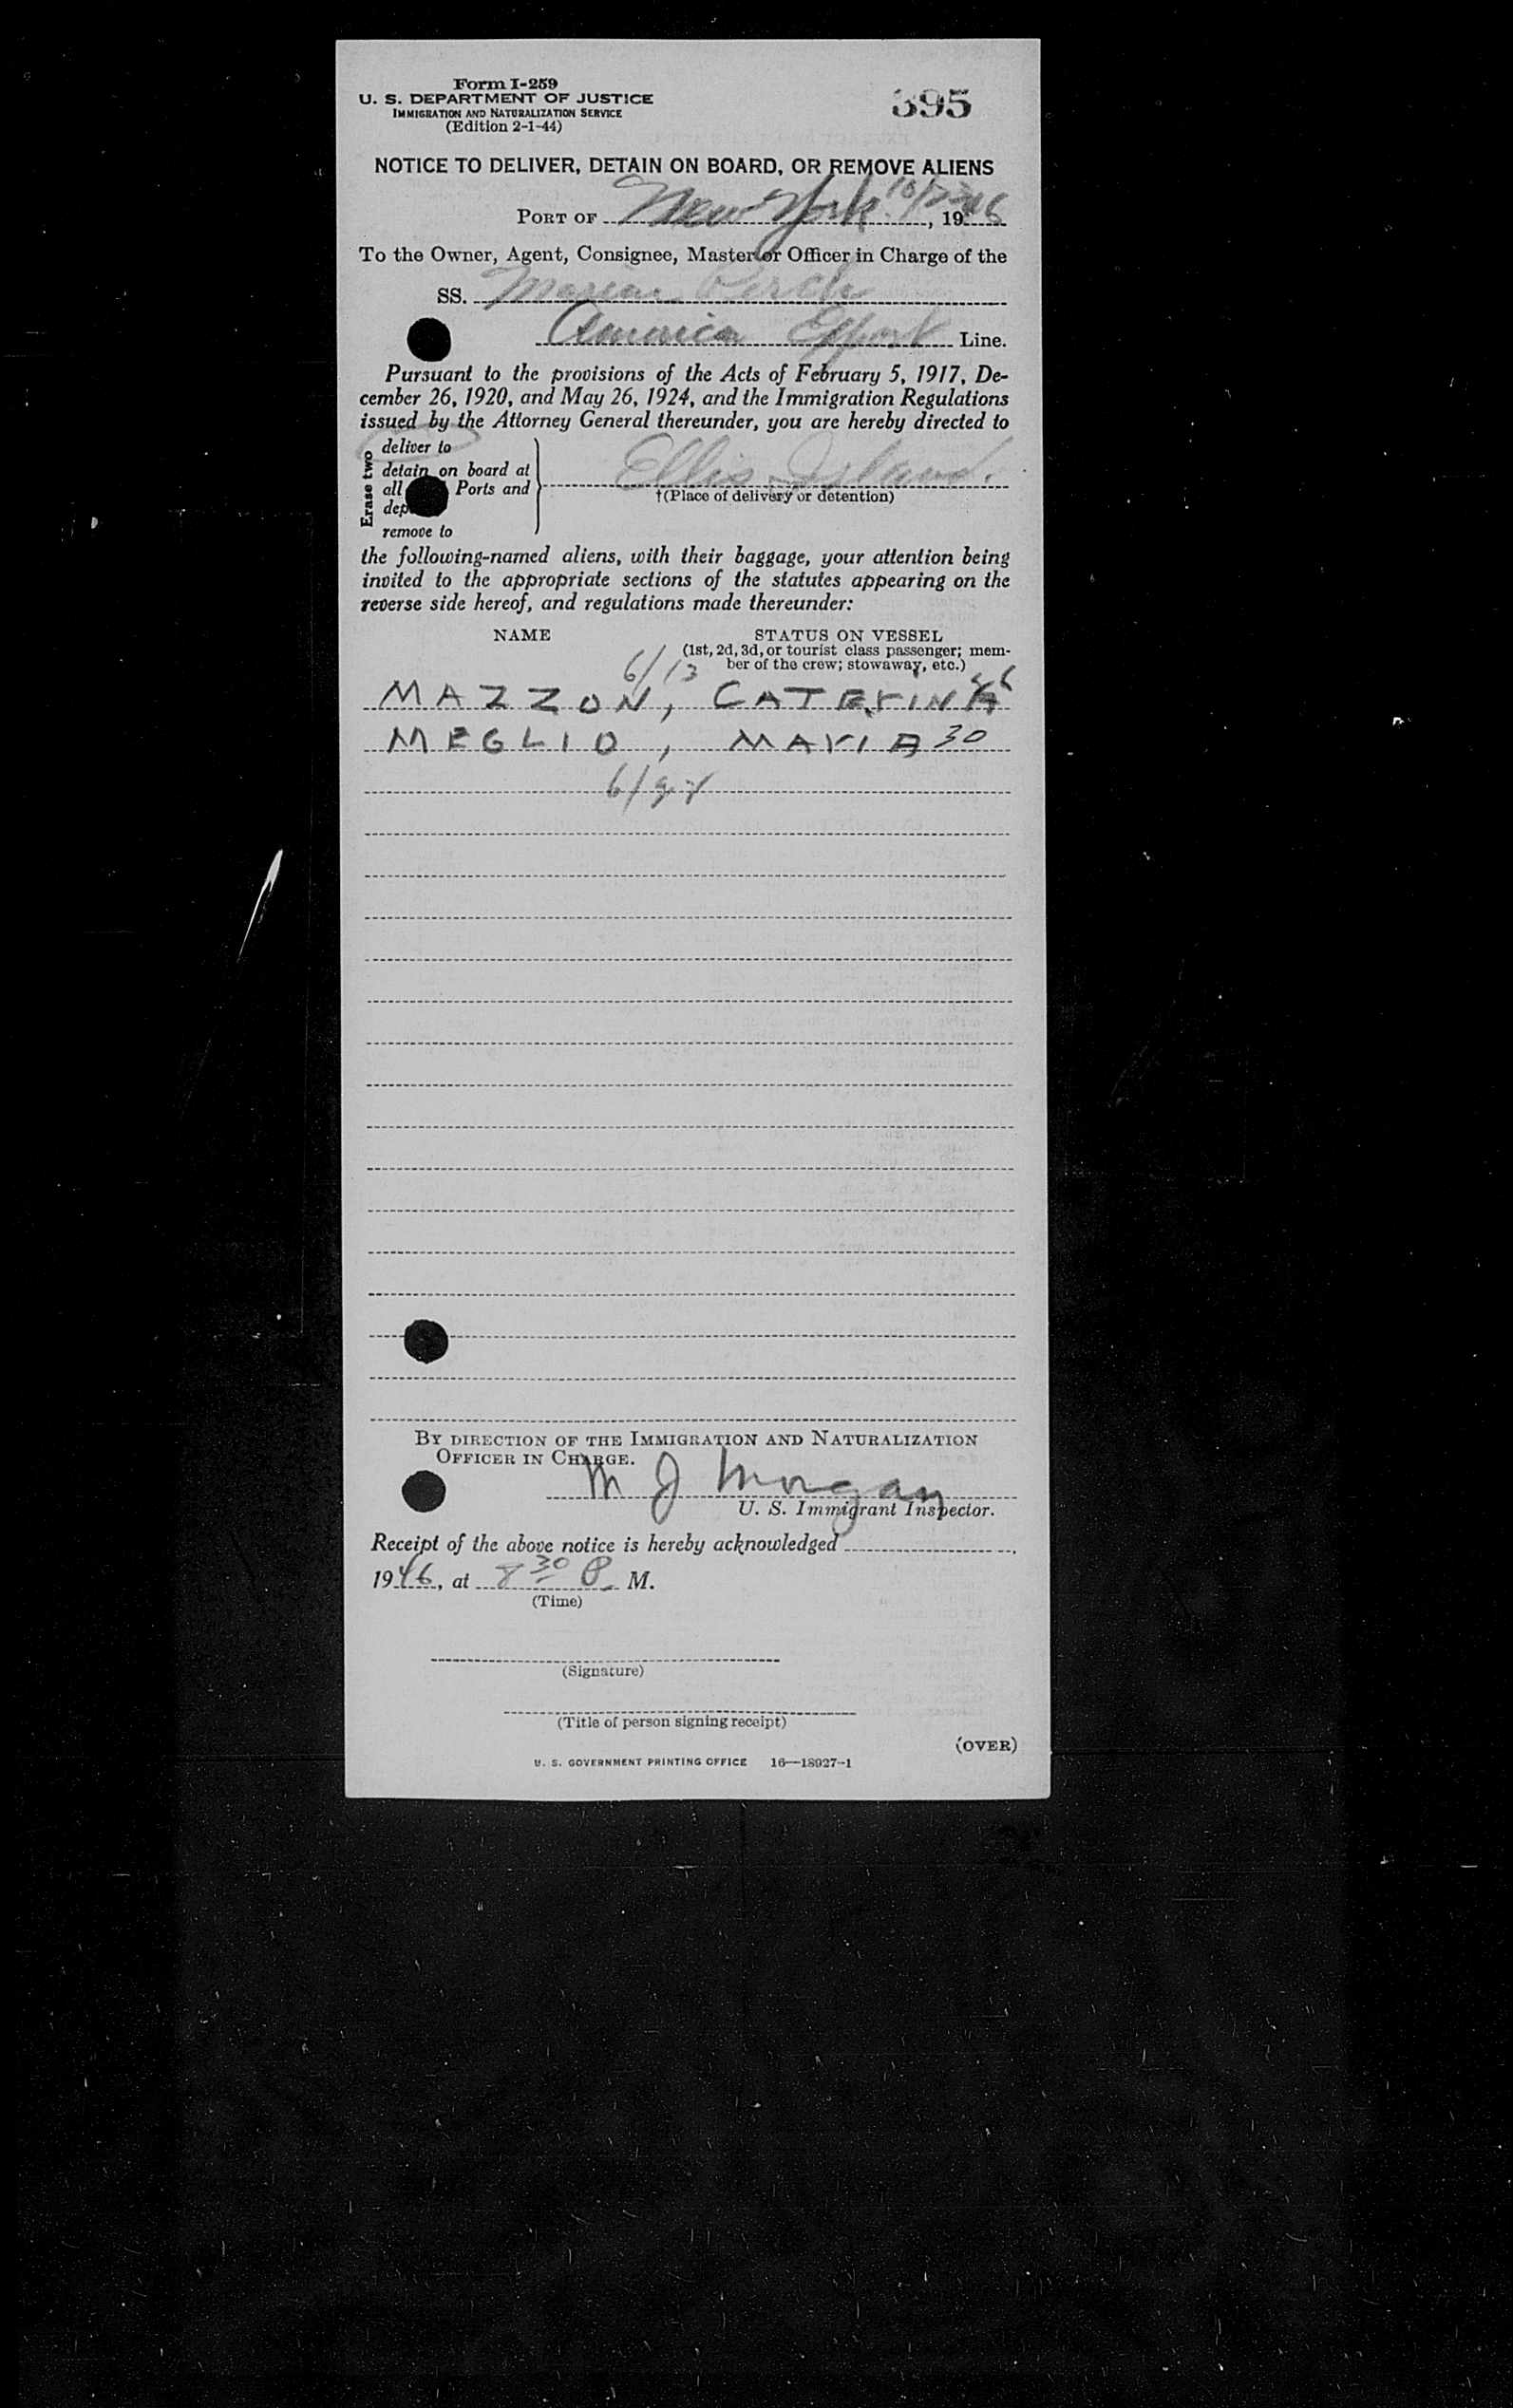 Form I-259
U. S. DEPARTMENT OF JUSTICE
IMMIGRATION AND NATURALIZATION SERVICE
(Edition 2-1-44)
395
NOTICE TO DELIVER, DETAIN ON BOARD, OR REMOVE ALIENS
PORT OF New York 19 46
To the Owner, Agent, Consignee, Master or Officer in Charge of the
SS. Marine Perch
America Export Line.
Pursuant to the provisions of the Acts of February 5, 1917, De-
cember 26, 1920, and May 26, 1924, and the Immigration Regulations
issued by the Attorney General thereunder, you are hereby directed to
Erase two
deliver to
detain on board at
all Ports and
dep
remove to
Ellis Island.
†(Place of delivery or detention)
the following-named aliens, with their baggage, your attention being
invited to the appropriate sections of the statutes appearing on the
reverse side hereof, and regulations made thereunder:
NAME
STATUS ON VESSEL
(1st, 2d, 3d, or tourist class passenger; mem-
ber of the crew; stowaway, etc.)
6/13
MAZZON, CATERINA
MEGLIO, MARIA 30
BY DIRECTION OF THE IMMIGRATION AND NATURALIZATION
OFFICER IN CHARGE.
M J Morgan
U. S. Immigrant Inspector.
Receipt of the above notice is hereby acknowledged
1946, at 8 30 P. M.
(Time)
(Signature)
(Title of person signing receipt)
(OVER)
U. S. GOVERNMENT PRINTING OFFICE 16—18927-1